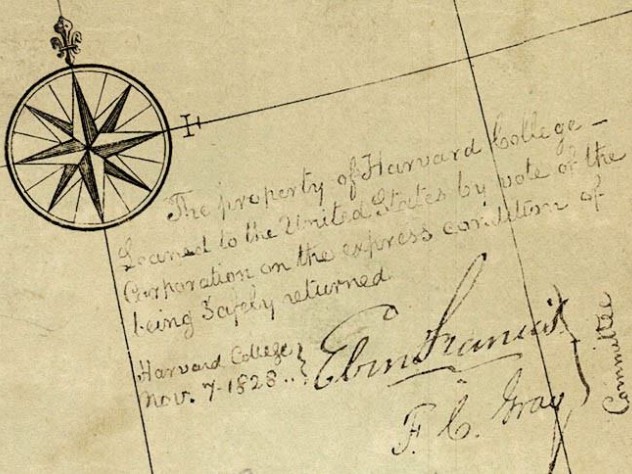 E
The property of Harvard College —
Loaned to the United States by vote of the
Corporation on the express condition of
being Safely returned
Harvard College
Nov. 7-1828..
Eben Francis
F. C. Gray
Committee